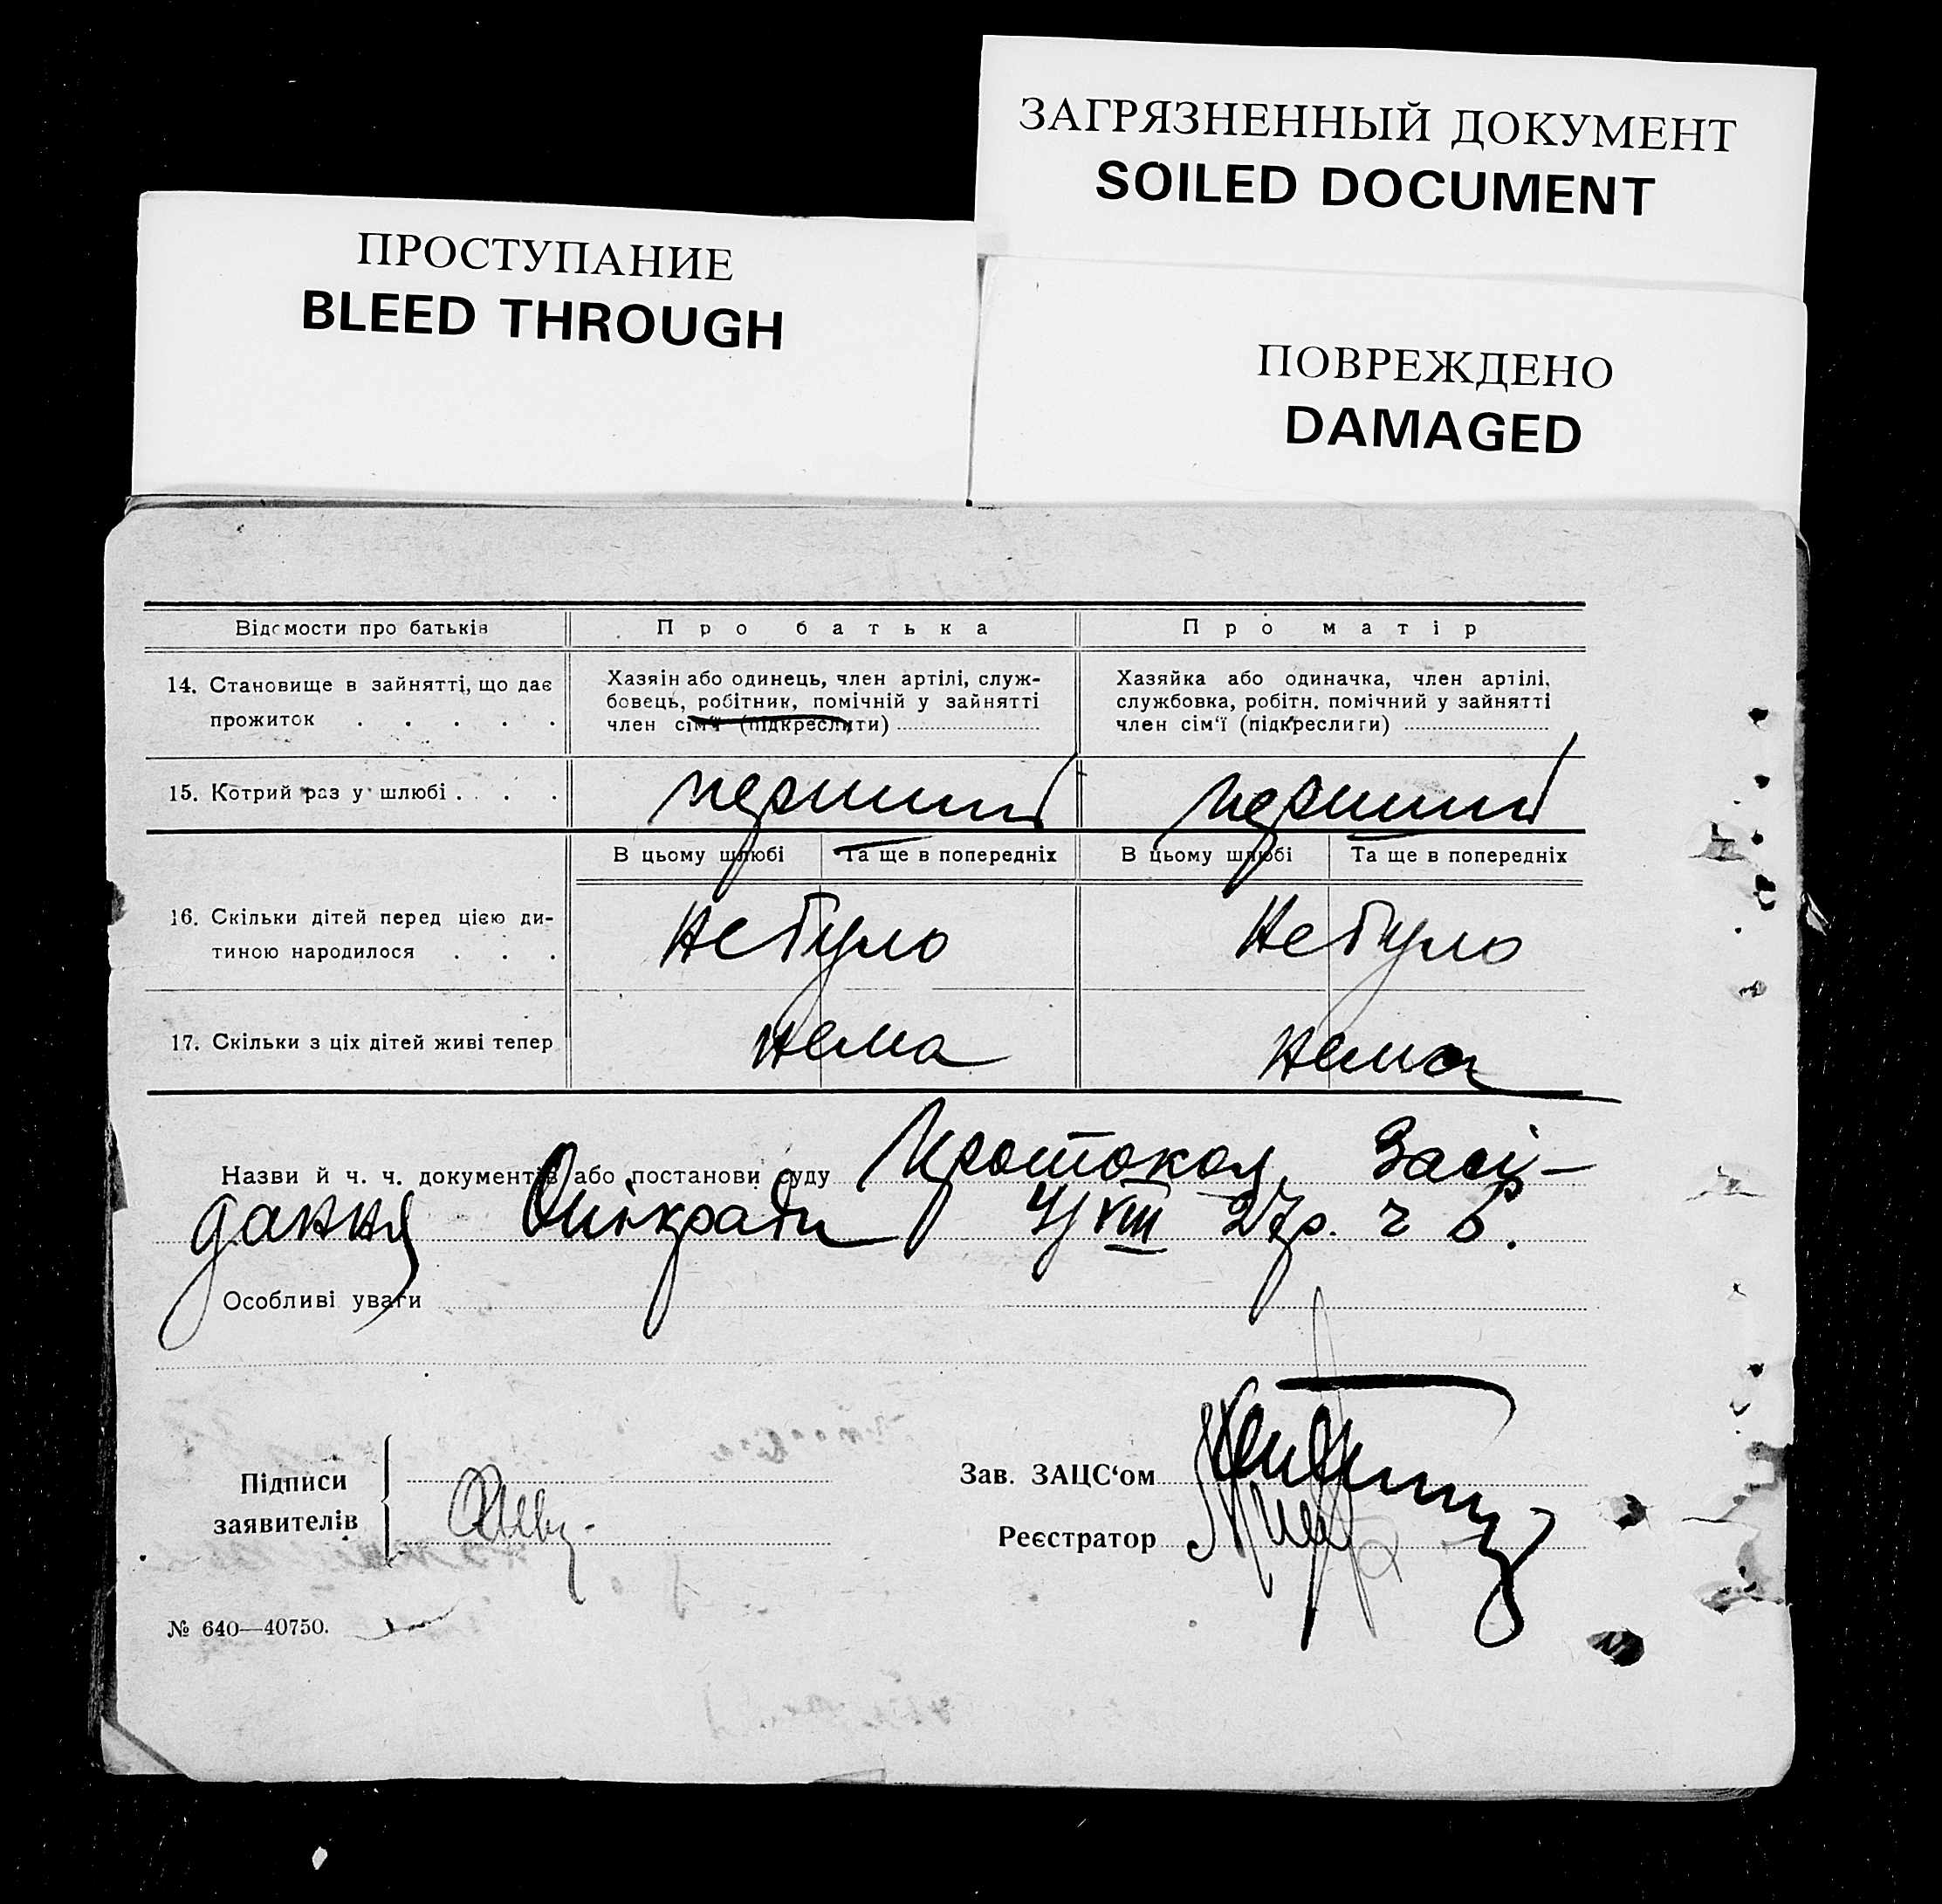 ЗАГРЯЗНЕННЫЙ ДОКУМЕНТ
SOILED DOCUMENT
ПРОСТУПАНИЕ
BLEED THROUGH
ПОВРЕЖДЕНО
DAMAGED
Відомости про батьків
Про батька
Про матір
14. Становище в зайнятті, що дає
прожиток . . . . .
Хазяін або одинець, член артілі, служ-
бовець, робітник, помічній у зайнятті
член сім‘ї (підкреслити)
Хазяйка або одиначка, член артілі,
службовка, робітн. помічний у зайнятті
член сім‘ї (підкреслити)
15. Котрий раз у шлюбі . . . .
перший
перший
В цьому шлюбі
Та ще в попередніх
В цьому шлюбі
Та ще в попередніх
16. Скільки дітей перед цією ди-
тиною народилося . . .
Не було
Не було
17. Скільки з ціх дітей живі тепер
нема
нема
Назви й ч. ч. документів або постанови суду Протокол Засі-
дання Опікради 4/VIII 27р. ч 5.
Особливі уваги
Підписи
заявителів
Зав. ЗАЦС‘ом
Реєстратор
№ 640—40750.